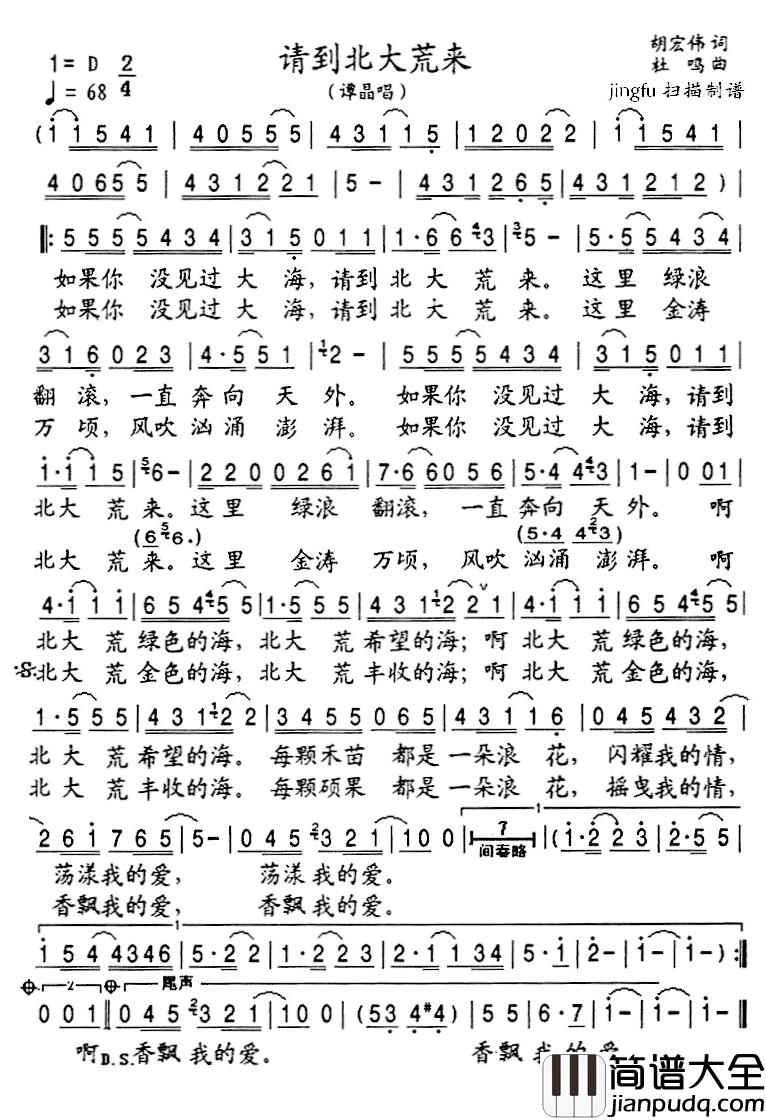 请到北大荒来
1= D 2/4
♩= 68
（谭晶唱）
胡宏伟 词
杜 鸣 曲
jingfu 扫描制谱
( i i 5 4 1 | 4 0 5 5 5 | 4 3 1 1 5 | 1 2 0 2 2 | i i 5 4 1 |
4 0 6 5 5 | 4 3 1 2 2 1 | 5 - | 4 3 1 2 6 5 | 4 3 1 2 1 2 ) |
‖: 5 5 5 5 4 3 4 | 3 1 5 0 1 1 | 1 · 6 6 4 3 | 3 5 - | 5 · 5 5 4 3 4 |
如果你 没见过 大 海，请到 北 大 荒 来。 这 里 绿浪
如果你 没见过 大 海，请到 北 大 荒 来。 这 里 金涛
3 1 6 0 2 3 | 4 · 5 5 5 1 | 1 2 - | 5 5 5 5 4 3 4 | 3 1 5 0 1 1 |
翻 滚，一直 奔 向 天 外。 如果你 没见过 大 海，请到
万 顷，风吹 汹 涌 澎 湃。 如果你 没见过 大 海，请到
i · i i 5 | 5 6 - | 2 2 0 0 2 6 i | 7 · 6 6 0 5 6 | 5 · 4 4 3 | 1 - | 0 0 1 |
北大 荒 来。这 里 绿浪 翻滚， 一直 奔向 天 外。 啊
(6 5 6 ·) (5 · 4 4 2 3)
北大 荒 来。这 里 金涛 万顷， 风吹 汹涌 澎 湃。 啊
4 · i i i | 6 5 4 4 5 5 | 1 · 5 5 5 | 4 3 1 1 2 2 1 | 4 · i i i | 6 5 4 4 5 5 |
北大 荒 绿色的海，北大 荒 希望的海；啊 北大 荒 绿色的海，
北大 荒 金色的海，北大 荒 丰收的海；啊 北大 荒 金色的海，
1 · 5 5 5 | 4 3 1 1 2 2 | 3 4 5 5 0 6 5 | 4 3 1 1 6 | 0 4 5 4 3 2 |
北 大 荒 希望的海。每颗禾苗 都是 一朵浪 花， 闪耀我的情，
北 大 荒 丰收的海。每颗硕果 都是 一朵浪 花， 摇曳我的情，
2 6 i 7 6 5 | 5 - | 0 4 5 2 3 2 1 | 1 0 0 | 7 间奏略 | 1 ( i · 2 2 3 | 2 · 5 5 |
荡漾我的爱， 荡漾 我的 爱。
香飘我的爱， 香飘 我的 爱。
1
i 5 4 4 3 4 6 | 5 · 2 2 | 1 · 2 2 3 | 2 · 1 1 3 4 | 5 · i | 2 - | i - ) :‖
2 尾声
0 0 1 ‖ 0 4 5 2 3 2 1 | 1 0 0 | (5 3 4 #4) | 5 5 | 6 · 7 | i - | i - | i - ‖
啊 D.S. 香飘 我的爱。 香飘 我 的 爱
简谱大全
jianpudq.com